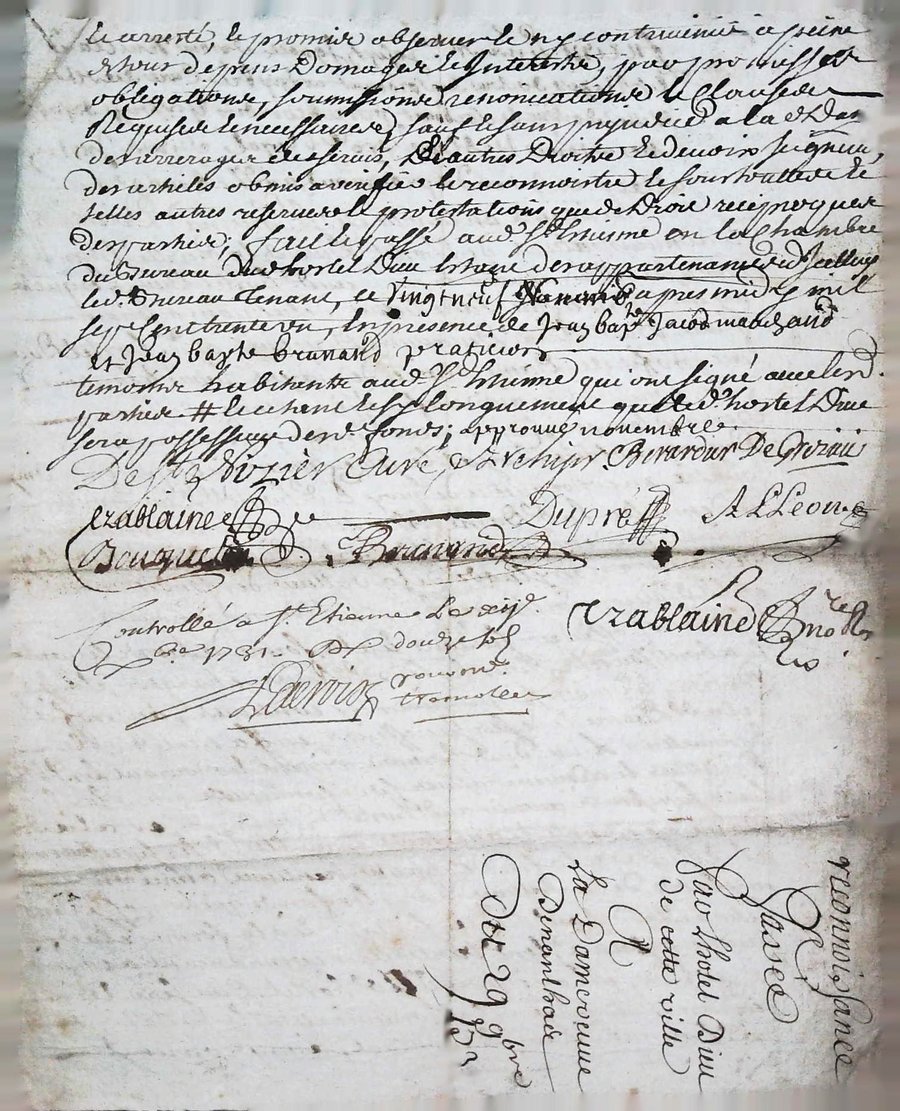 le arresté, le promis observer le n'y contrevenir à peine
de tous depens Domages le Interestz, par promesses
obligations, soumissions renonciations & Clauses
Requises le necessaires, sauf le sans prejudice a la d. Dam
des arrerages de servis, & autres Droitz le devoirs seigneu.
des articles obmis a verifier le reconnoistre le sous toutes le
telles autres reserves le protestations que de Droit reciproques
des parties; fait le passé aud. St Etienne en la Chambre
du Bureau dud. hostel Dieu Estant des appartenances d'Icelluy
led. Bureau Tenant, le Vingtneuf Novembre apres midy mil
sept Cent trente un, En presence de Jean bapte Jacod marchand
et Jean bapte brunand praticien
temoins habitants aud. St Etienne qui ont signé avec lesd.
parties # le tant le si longuement que led. hostel Dieu
sera possesseur desd. fonds; approuvé novembre.
De St Nizier Curé Berardier De Grezieu
Trablaine Dupré A L Leon
Bouquet Brunand
Controllé a St. Etienne Le xije.
xbre 1731. R douze sols
Trablaine nore
reconnoissance
Passée
Par Lhotel Dieu
de cette ville
A
La Dame veuve
Du 29 9bre